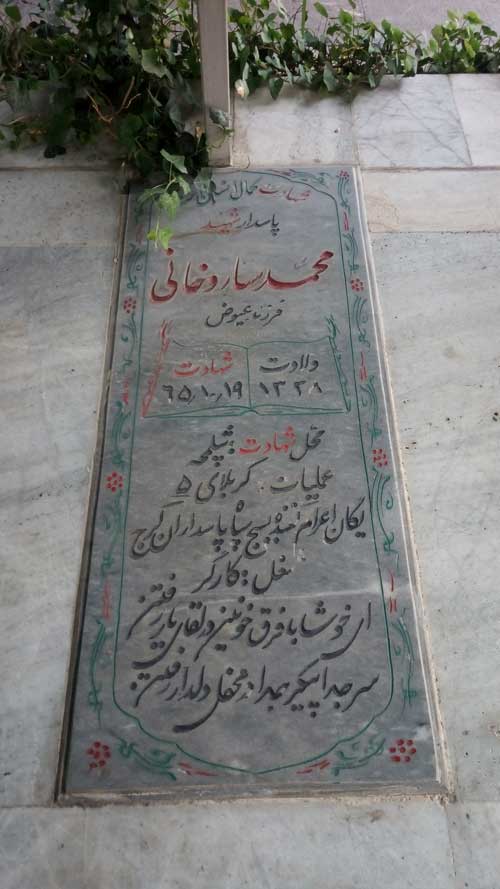 شهادت کمال انسان است
پاسدار شهید
محمد ساروخانی
فرزند عیوض
ولادت شهادت
۱۳۳۸ ۶۵٫۱۰٫۱۹
محل شهادت: شلمچه
عملیات: کربلای ۵
یگان اعزام کننده بسیج سپاه پاسداران کرج
شغل: کارگر
ای خوشا با فرق خونین در لقای یار رفتن
سر جدا پیکر جدا در محفل دلدار رفتن